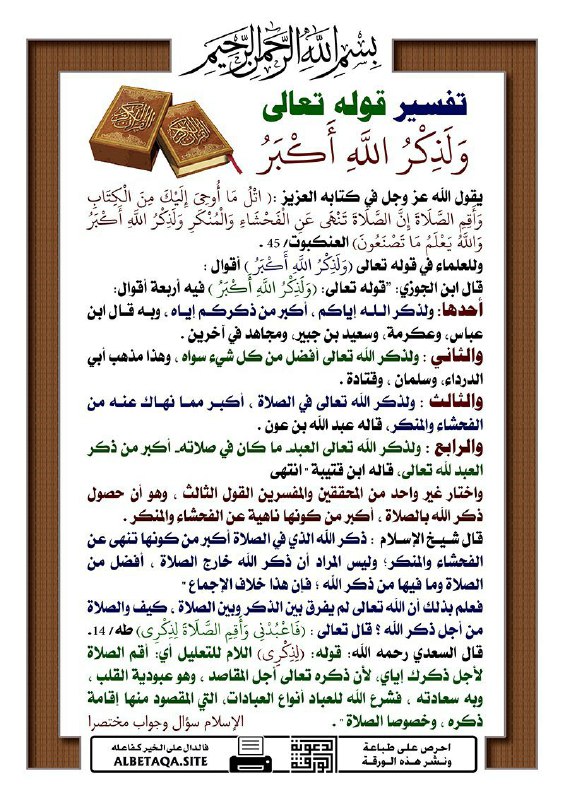 بسم الله الرحمن الرحيم
تفسير قوله تعالى
وَلَذِكْرُ اللَّهِ أَكْبَرُ
يقول الله عز وجل في كتابه العزيز :( اتْلُ مَا أُوحِيَ إِلَيْكَ مِنَ الْكِتَابِ
وَأَقِمِ الصَّلَاةَ إِنَّ الصَّلَاةَ تَنْهَى عَنِ الْفَحْشَاءِ وَالْمُنْكَرِ وَلَذِكْرُ اللَّهِ أَكْبَرُ
وَاللَّهُ يَعْلَمُ مَا تَصْنَعُونَ) العنكبوت/ 45 .
وللعلماء في قوله تعالى (وَلَذِكْرُ اللَّهِ أَكْبَرُ ) أقوال :
قال ابن الجوزي: "قوله تعالى: (وَلَذِكْرُ اللَّهِ أَكْبَرُ ) فيه أربعة أقوال:
أحدها: ولذكر الله إياكم ، أكبر من ذكركم إياه ، وبه قال ابن
عباس، وعكرمة، وسعيد بن جبير، ومجاهد في آخرين .
والثاني : ولذكر الله تعالى أفضل من كل شيء سواه ، وهذا مذهب أبي
الدرداء، وسلمان ، وقتادة .
والثالث : ولذكر الله تعالى في الصلاة ، أكبر مما نهاك عنه من
الفحشاء والمنكر، قاله عبد الله بن عون .
والرابع : ولذكر الله تعالى العبدـ ما كان في صلاتهـ أكبر من ذكر
العبد لله تعالى، قاله ابن قتيبة " انتهى
واختار غير واحد من المحققين والمفسرين القول الثالث ، وهو أن حصول
ذكر الله بالصلاة ، أكبر من كونها ناهية عن الفحشاء والمنكر .
قال شيخ الإسلام : ذكر الله الذي في الصلاة أكبر من كونها تنهى عن
الفحشاء والمنكر؛ وليس المراد أن ذكر الله خارج الصلاة ، أفضل من
الصلاة وما فيها من ذكر الله ؛ فإن هذا خلاف الإجماع "
فعلم بذلك أن الله تعالى لم يفرق بين الذكر وبين الصلاة ، كيف والصلاة
من أجل ذكر الله ؟ قال تعالى : (فَاعْبُدْنِي وَأَقِمِ الصَّلَاةَ لِذِكْرِي) طه/ 14.
قال السعدي رحمه الله: قوله: (لِذِكْرِي) اللام للتعليل أي: أقم الصلاة
لأجل ذكرك إياي، لأن ذكره تعالى أجل المقاصد ، وهو عبودية القلب ،
وبه سعادته ، فشرع الله للعباد أنواع العبادات، التي المقصود منها إقامة
ذكره ، وخصوصا الصلاة " .
الإسلام سؤال وجواب مختصرا
احرص على طباعة
ونشر هذه الورقة
الدعوية
الورقة
فالدال على الخير كفاعله
ALBETAQA.SITE